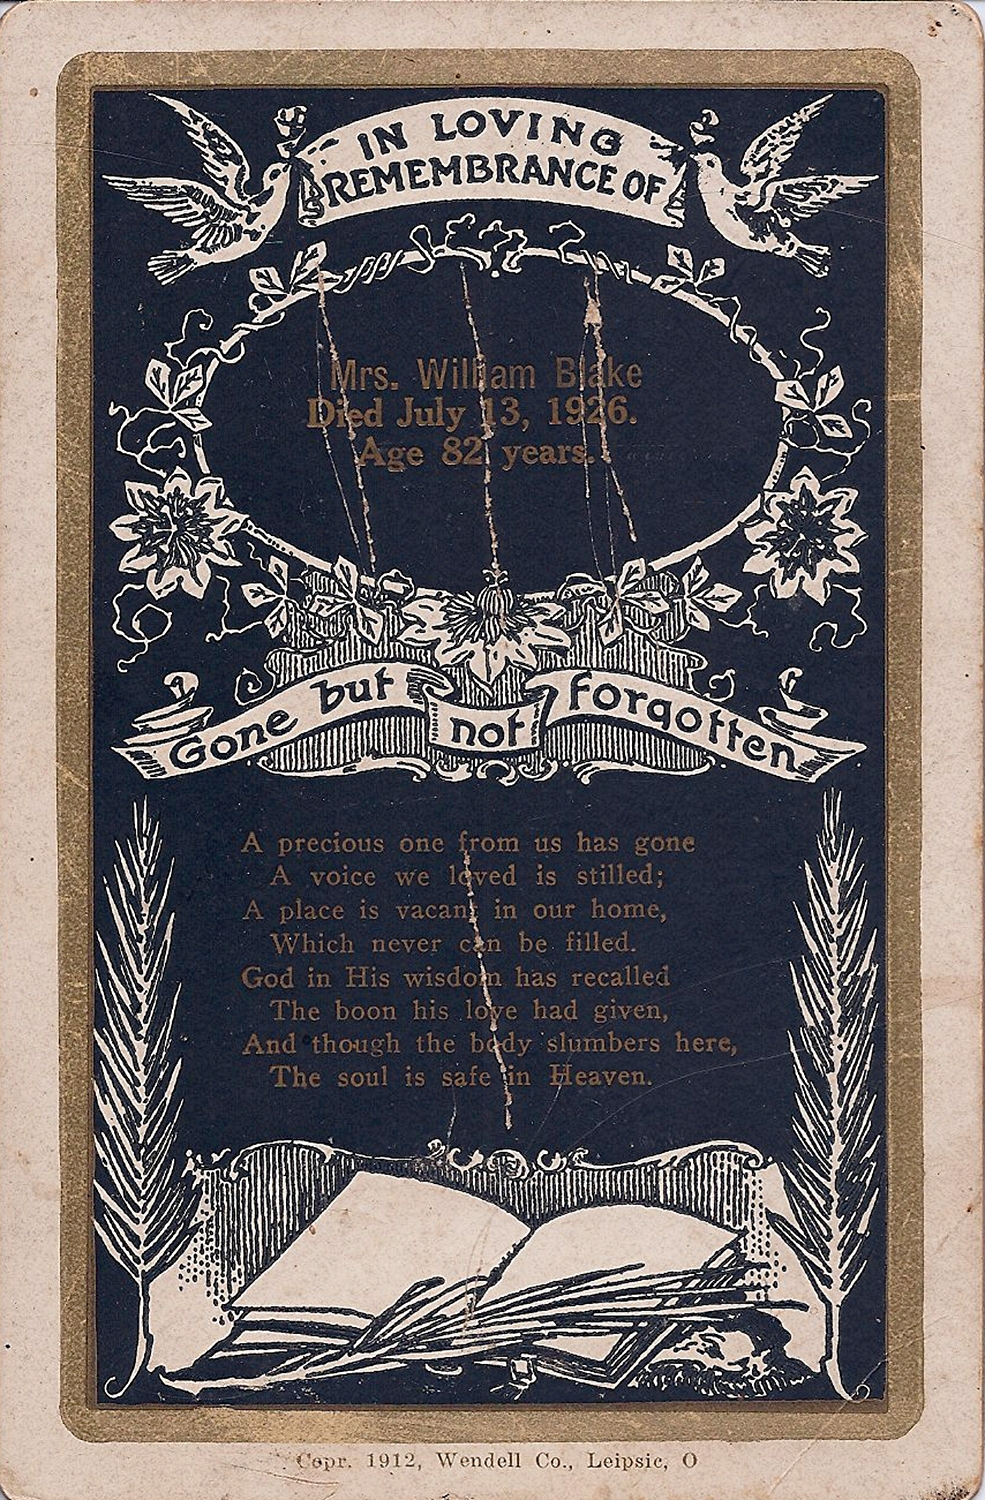 IN LOVING
REMEMBRANCE OF
Mrs. William Blake
Died July 13, 1926.
Age 82 years.
Gone but not forgotten
A precious one from us has gone
A voice we loved is stilled;
A place is vacant in our home,
Which never can be filled.
God in His wisdom has recalled
The boon his love had given,
And though the body slumbers here,
The soul is safe in Heaven.
Copr. 1912, Wendell Co., Leipsic, O